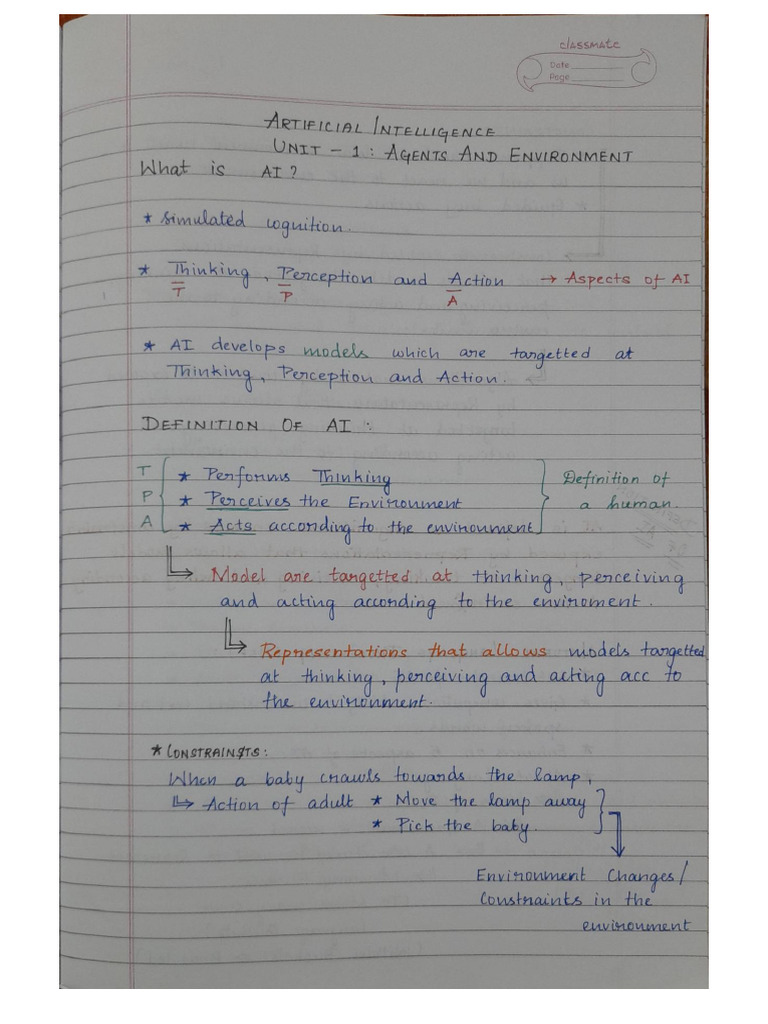 classmate
Date
Page
ARTIFICIAL INTELLIGENCE
UNIT - 1 : AGENTS AND ENVIRONMENT
What is AI?
* Simulated cognition.
* Thinking, Perception and Action → Aspects of AI
T P A
* AI develops models which are targetted at
Thinking, Perception and Action.
DEFINITION OF AI :
T * Performs Thinking Definition of
P * Perceives the Environment a human.
A * Acts according to the environment
↳ Model are targetted at thinking, perceiving
and acting according to the enviroment.
↳ Representations that allows models targetted
at thinking, perceiving and acting acc to
the environment.
* CONSTRAINSTS:
When a baby crawls towards the lamp,
↳ Action of adult * Move the lamp away
* Pick the baby.
Environment Changes/
Constraints in the
environment